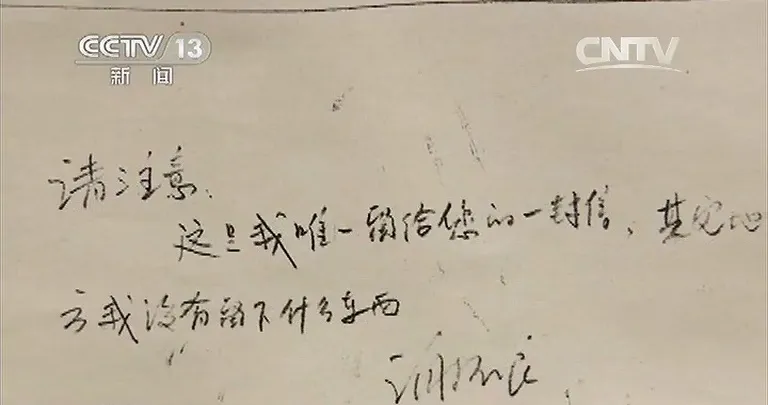 CCTV 13
新闻
CNTV
请注意
这是我唯一留给您的一封信、其它地
方我没有留下什么东西